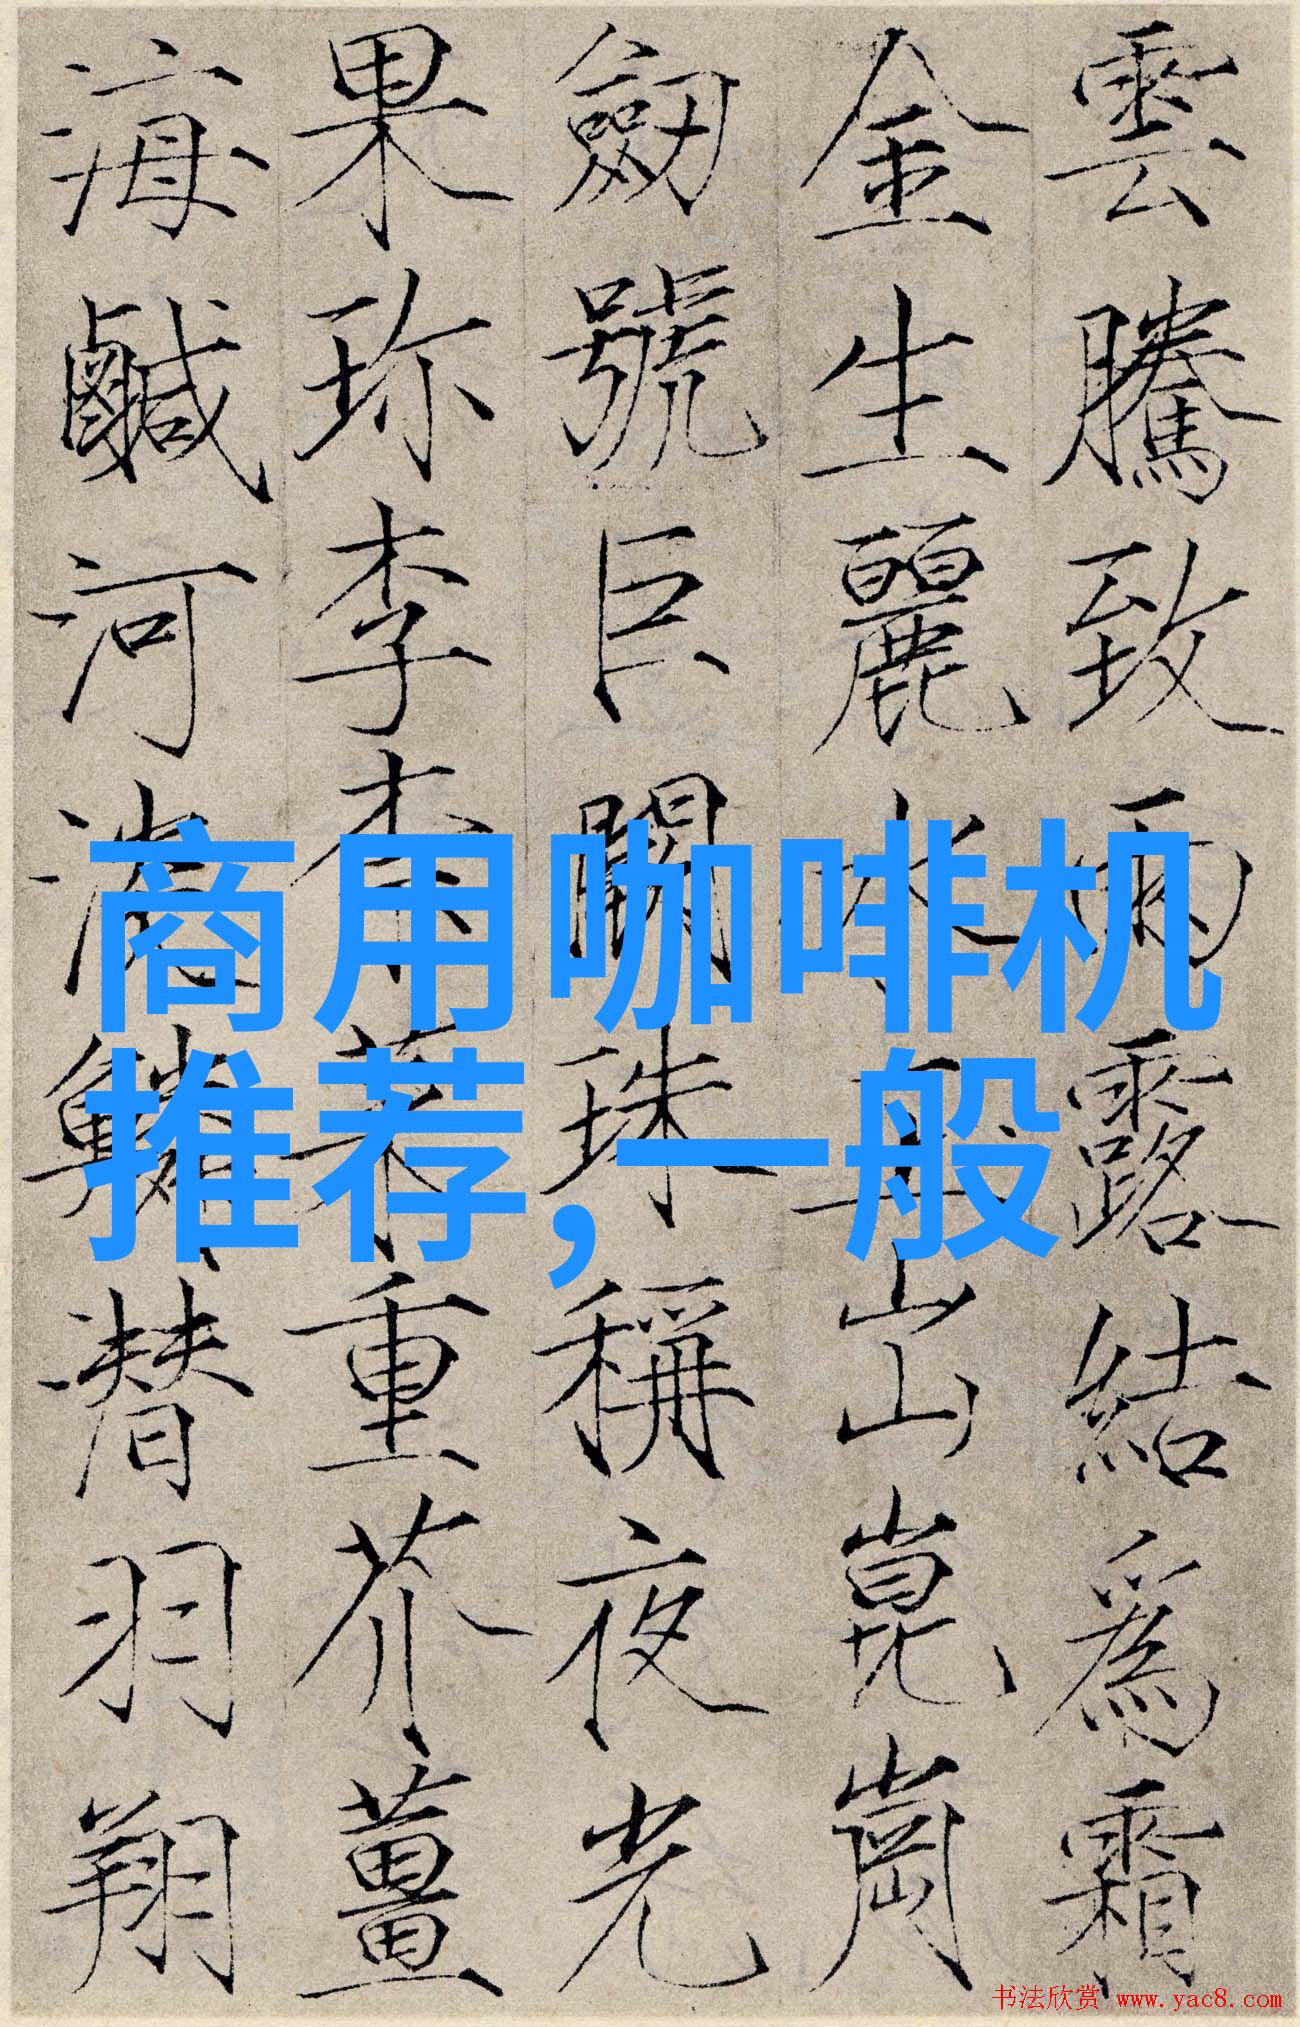 雲騰致雨露結為霜
金生麗水玉出崑崗
劒號巨闕珠稱夜光
果珎李柰菜重芥薑
海鹹河淡鱗潜羽翔
商用咖啡机
推荐，一般
书法欣赏 www.yac8.com